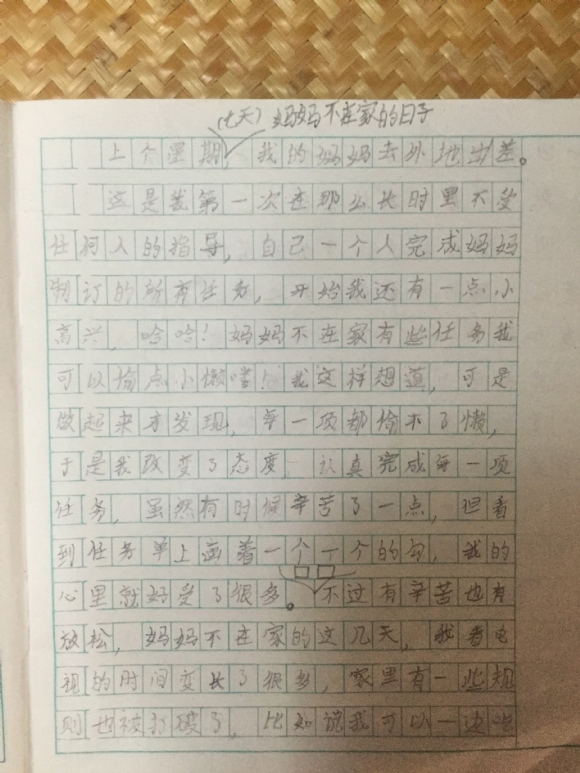 (七天) 妈妈不在家的日子
上个星期，我的妈妈去外地出差。
这是我第一次在那么长时里不受
任何人的指导，自己一个人完成妈妈
制订的所有任务，开始我还有一点小
高兴，哈哈！妈妈不在家有些任务我
可以偷点小懒喽！我这样想道，可是
做起来才发现，每一项都偷不了懒，
于是我改变了态度，认真完成每一项
任务，虽然有时候辛苦了一点，但看
到任务单上画着一个一个的勾，我的
心里就好受了很多。不过有辛苦也有
放松，妈妈不在家的这几天，我看电
视的时间变长了很多，家里有一些规
则也被打破了，比如说我可以一边吃